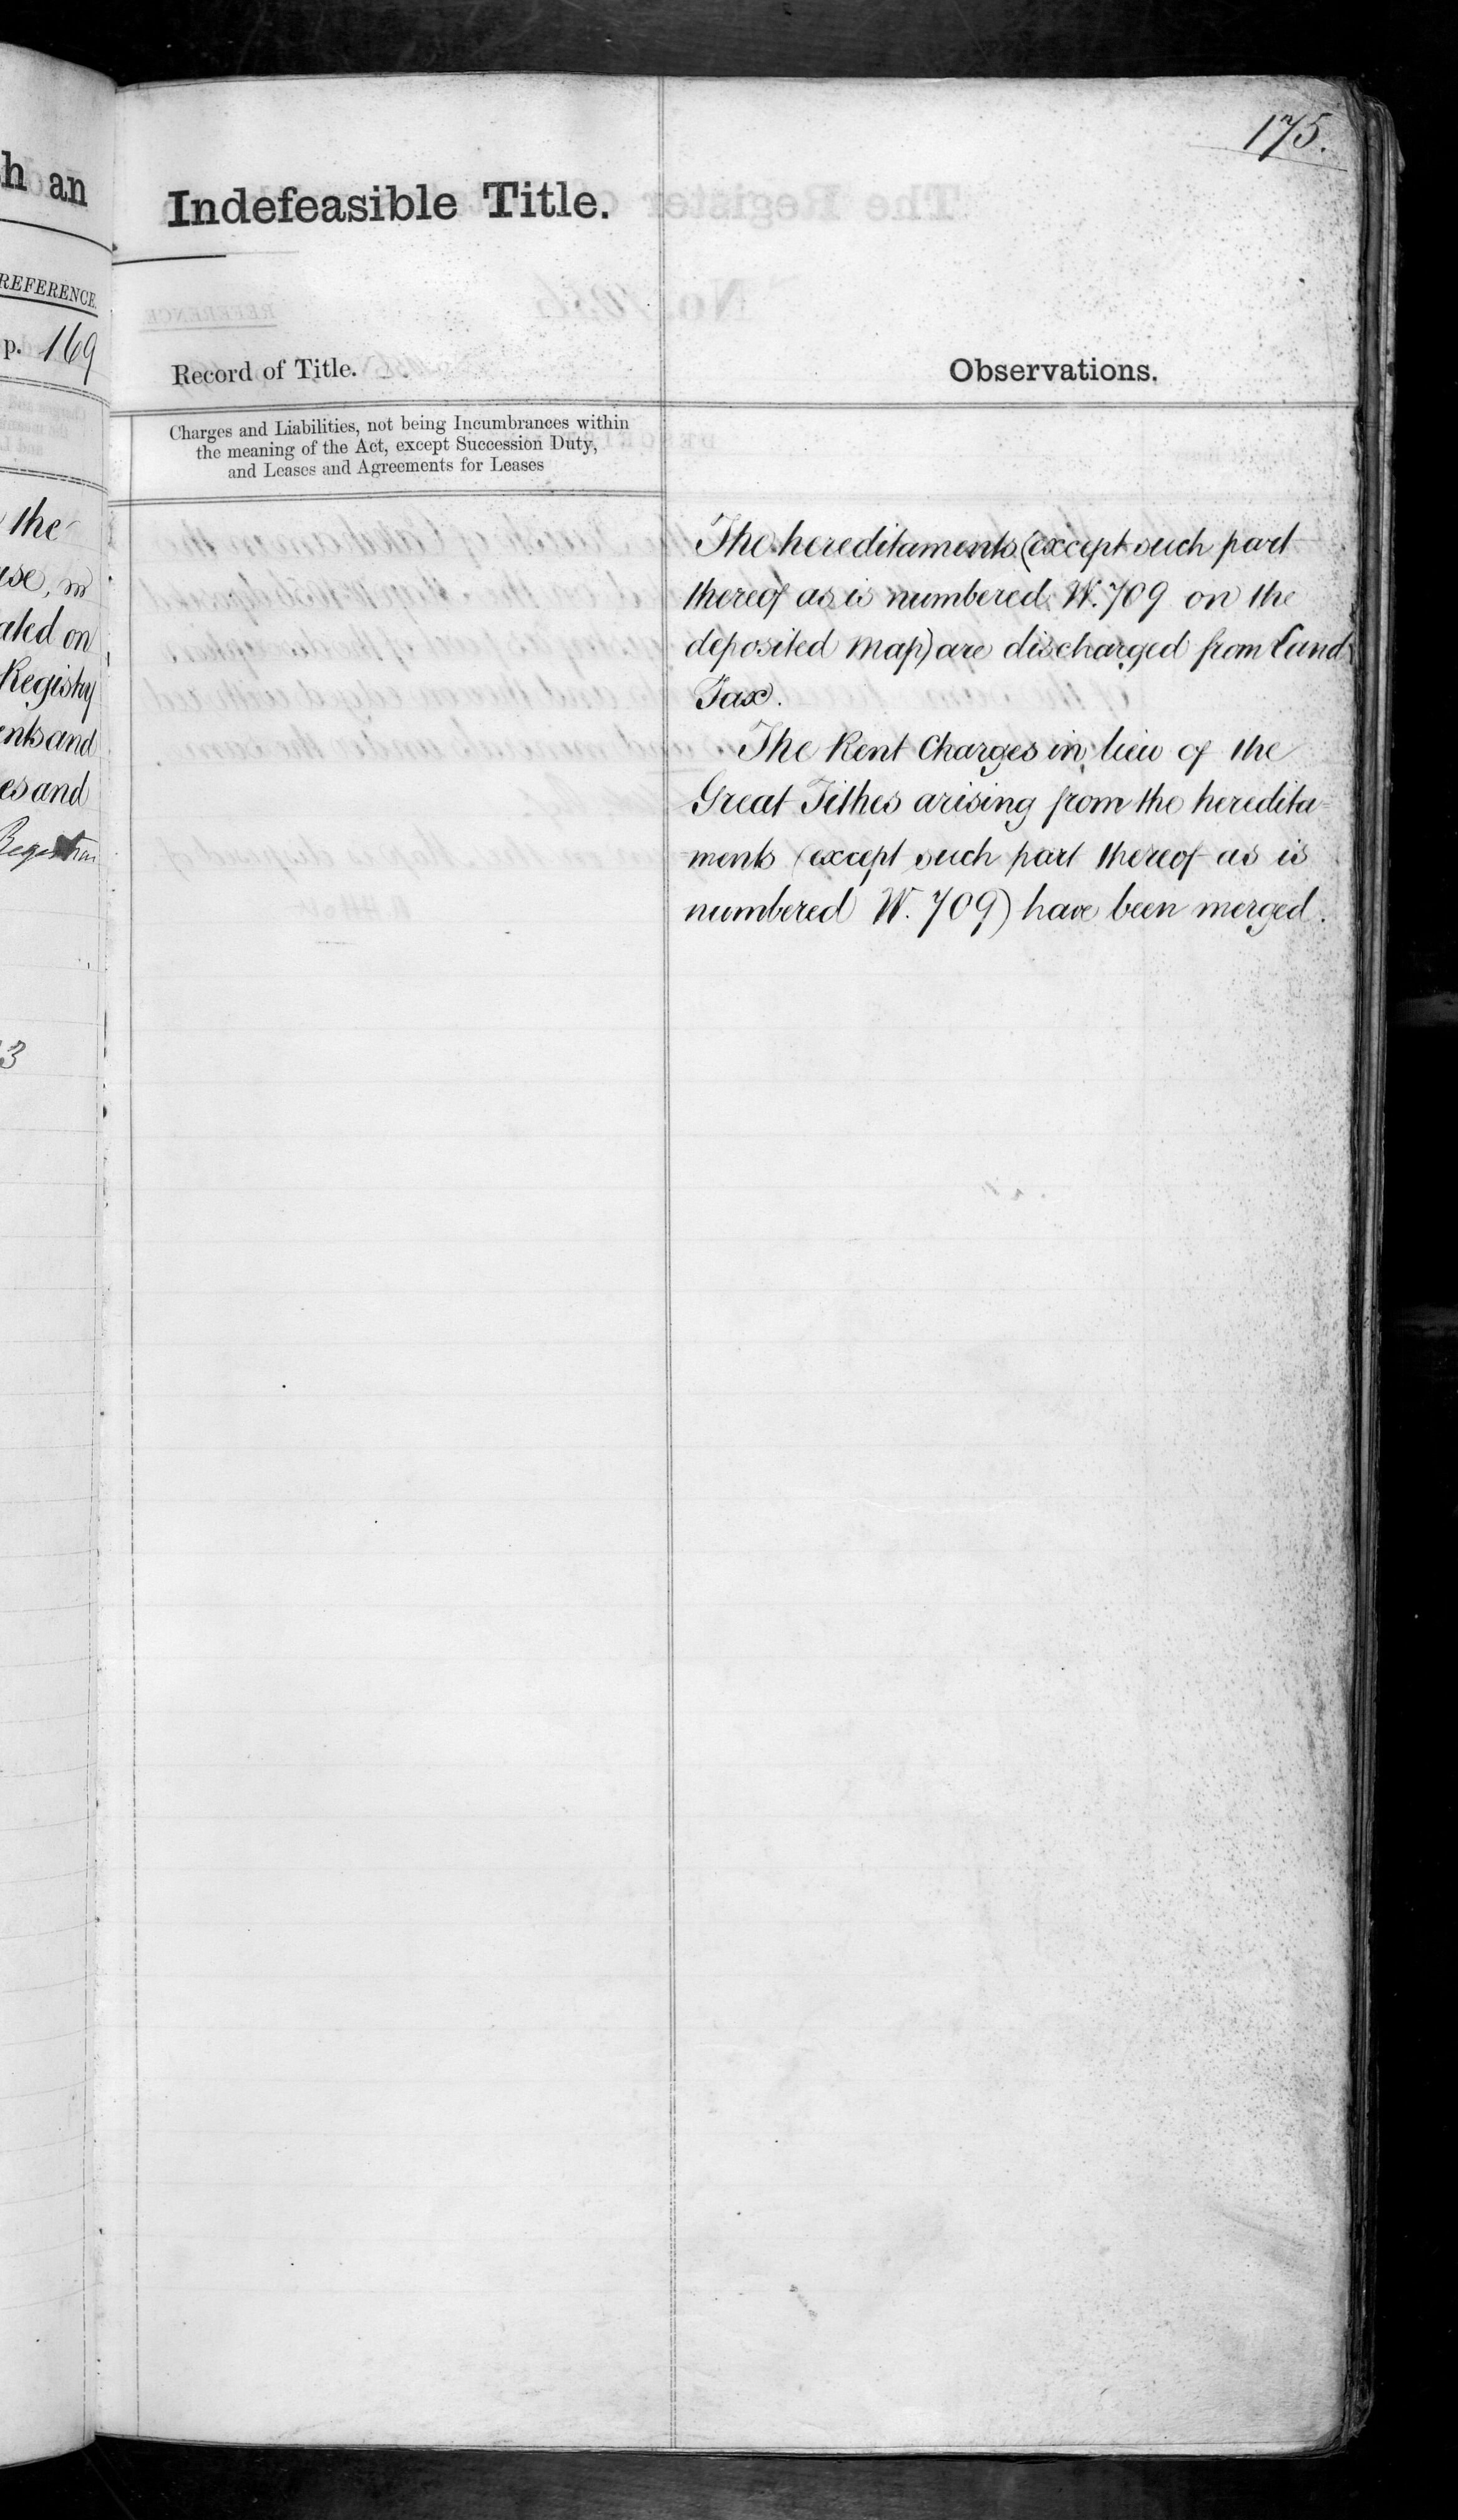 h an
REFERENCE.
p. 169
the
use, in
ated on
Registry
ents and
es and
3
175.
Indefeasible Title.
Record of Title.
Charges and Liabilities, not being Incumbrances within
the meaning of the Act, except Succession Duty,
and Leases and Agreements for Leases
Observations.
The hereditaments (except such part
thereof as is numbered W. 709 on the
deposited Map) are discharged from Land
Tax.
The Rent Charges in lieu of the
Great Tithes arising from the heredita-
ments (except such part thereof as is
numbered W. 709) have been merged.